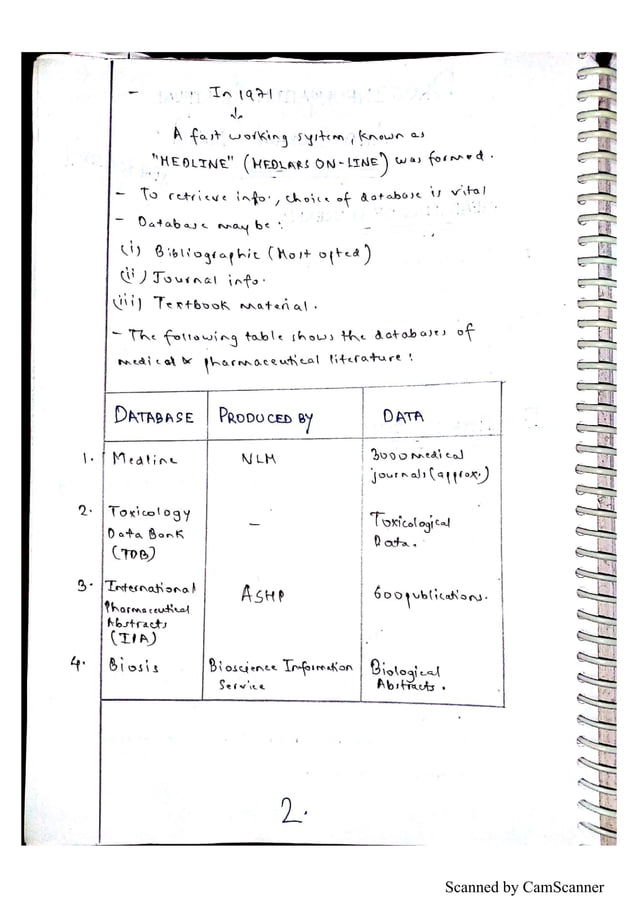 - In 1971
↓
A fast working system, known as
"MEDLINE" (MEDLARS ON-LINE) was formed.
- To retrieve info., choice of database is vital
- Database may be :
(i) Bibliographic (Most opted)
(ii) Journal info.
(iii) Textbook material.
- The following table shows the databases of
medical & pharmaceutical literature :
DATABASE PRODUCED BY DATA
1. Medline NLM 3000 medical
journals (approx.)
2. Toxicology
Data Bank
(TDB) - Toxicological
Data.
3. International
Pharmaceutical
Abstracts
(IPA) ASHP 600 publications.
4. Biosis Bioscience Information
Service Biological
Abstracts.
2.
Scanned by CamScanner